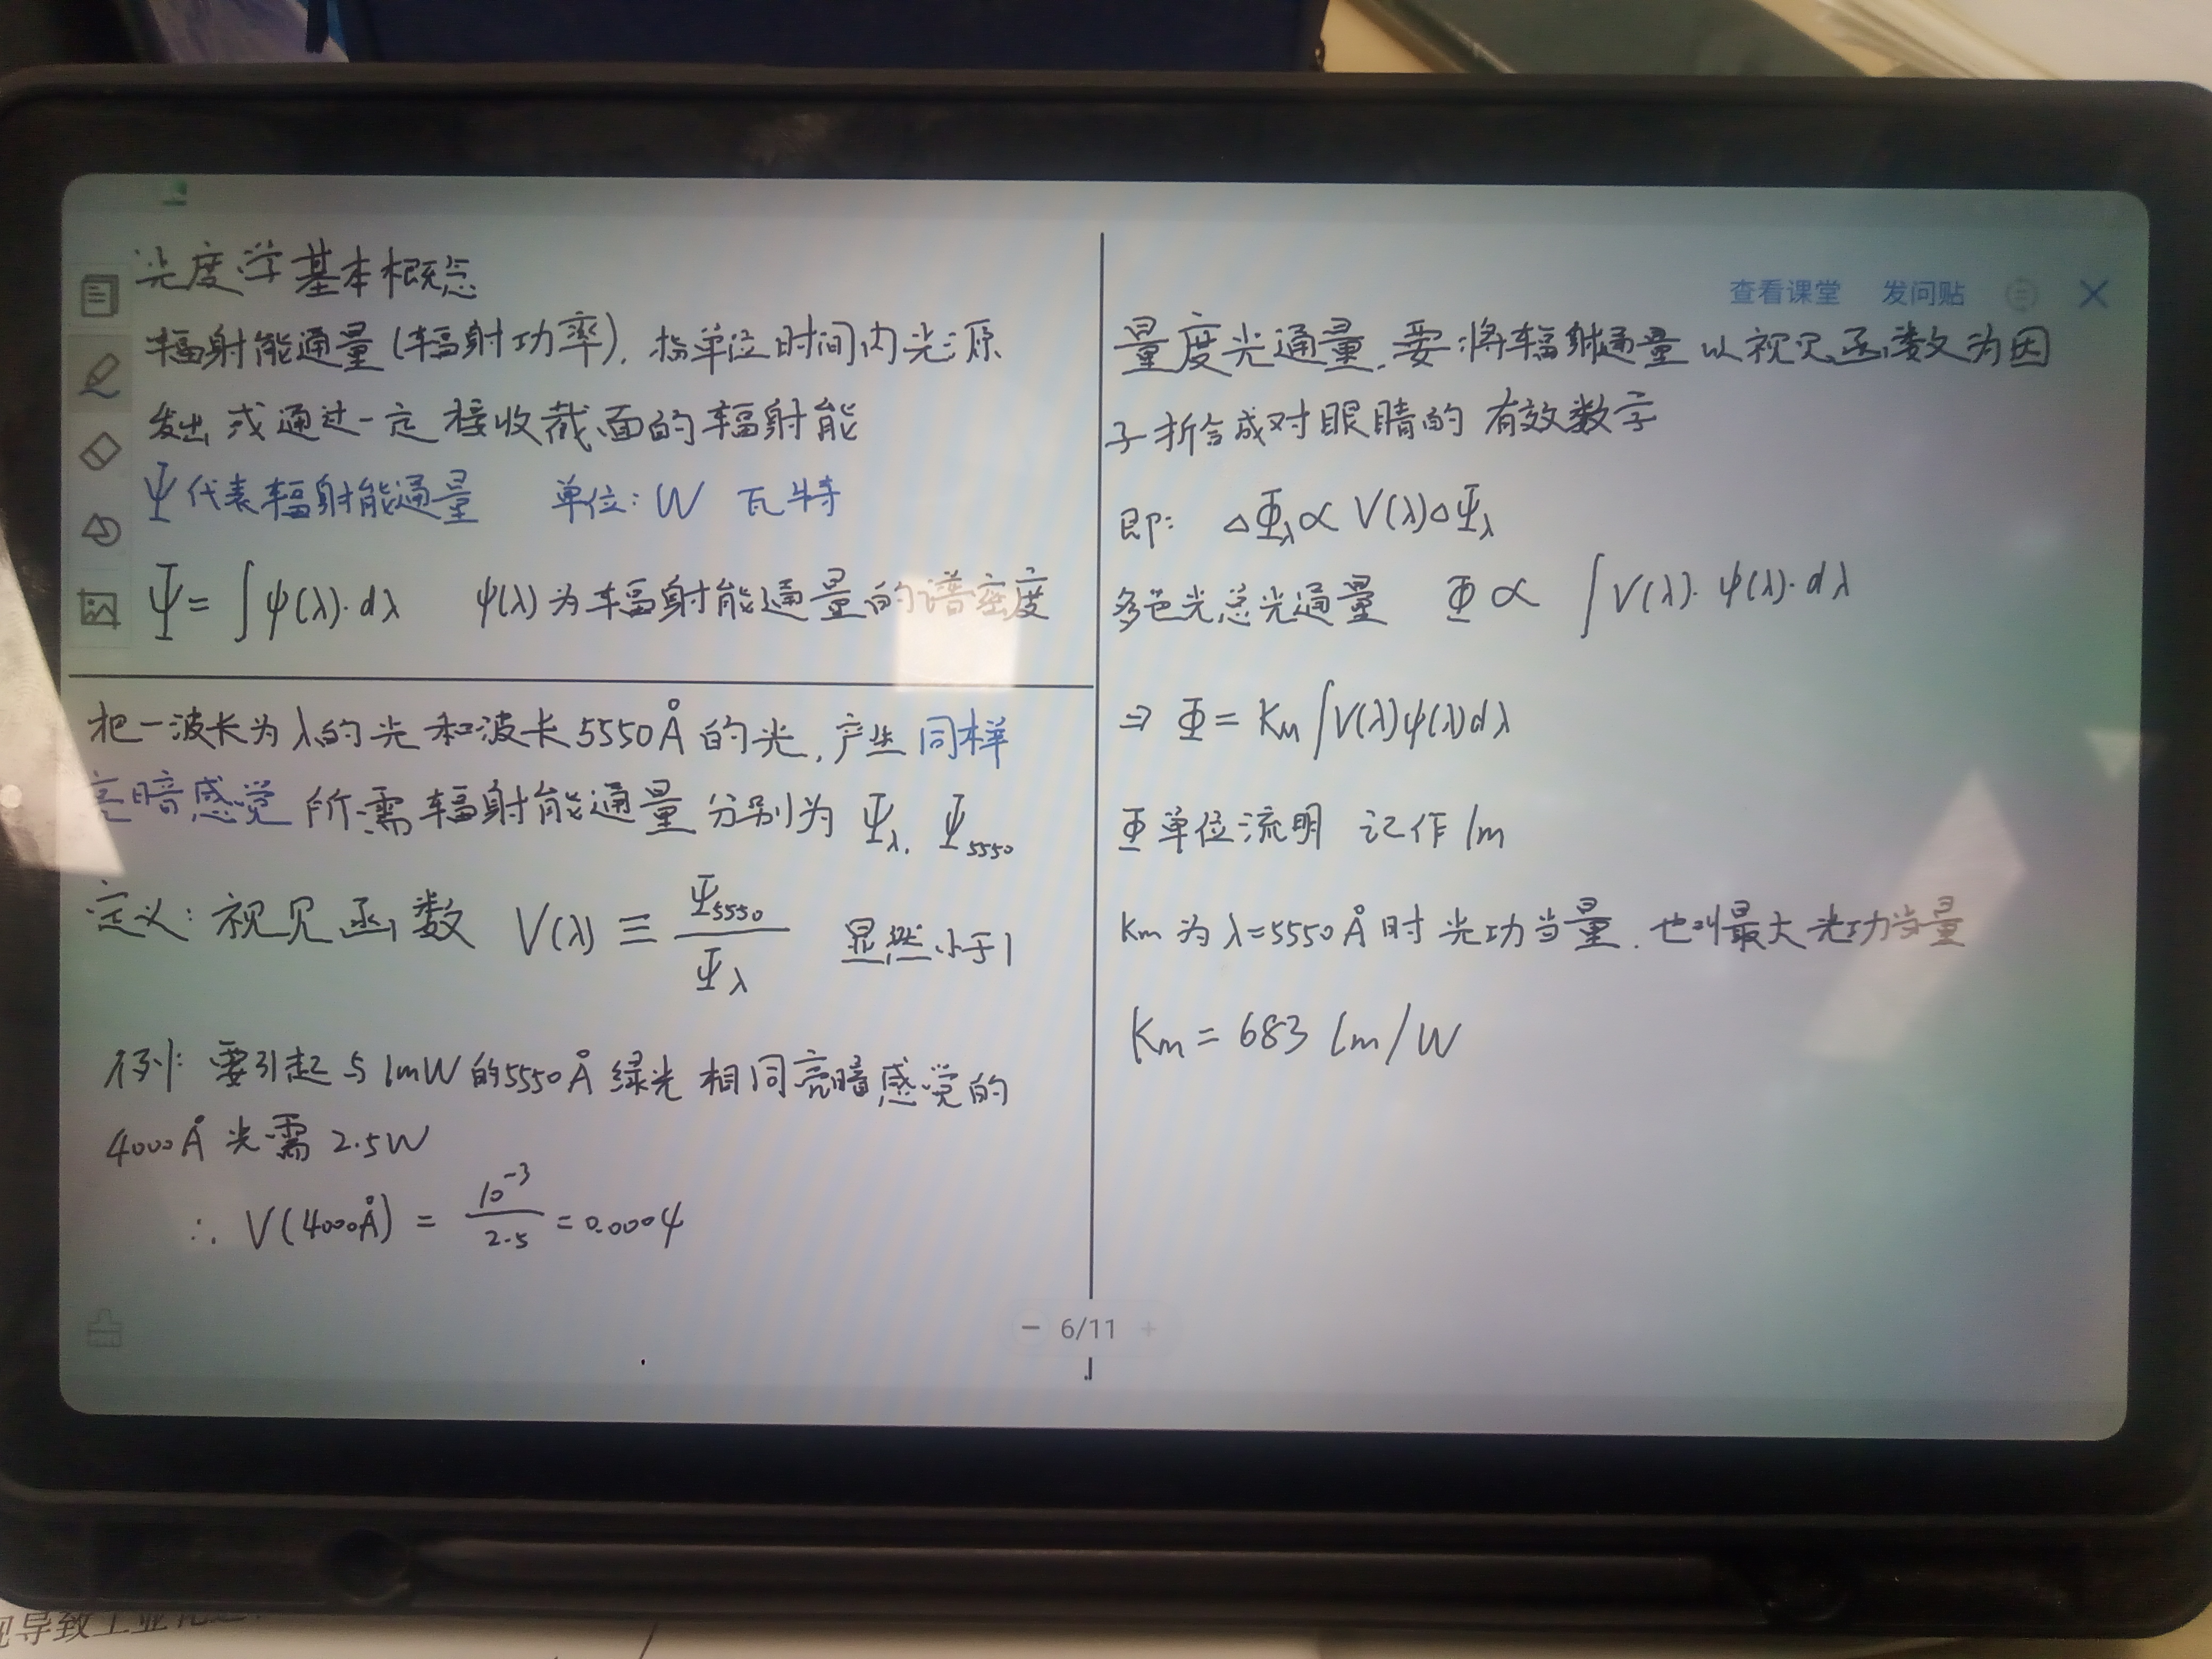 光度学基本概念
辐射能通量(辐射功率),指单位时间内光源
发出或通过一定接收截面的辐射能
Ψ代表辐射能通量 单位:W 瓦特
Ψ=∫ψ(λ)·dλ ψ(λ)为辐射能通量的谱密度
把一波长为λ的光和波长5550Å的光,产生同样
亮暗感觉所需辐射能通量分别为 Ψλ, Ψ5550
定义:视见函数 V(λ) ≡ Ψ5550/Ψλ 显然小于1
例:要引起与1mW的5550Å绿光相同亮暗感觉的
4000Å光需2.5W
∴ V(4000Å) = 10⁻³/2.5 = 0.0004
查看课堂 发问贴
量度光通量,要将辐射通量以视见函数为因
子折合成对眼睛的有效数字
即: △Φλ∝V(λ)△Ψλ
多色光总光通量 Φ∝ ∫V(λ)·ψ(λ)·dλ
⇒ Φ=Km∫V(λ)ψ(λ)dλ
Φ单位流明 记作lm
Km为λ=5550Å时光功当量,也叫最大光功当量
Km=683 lm/W
− 6/11 +